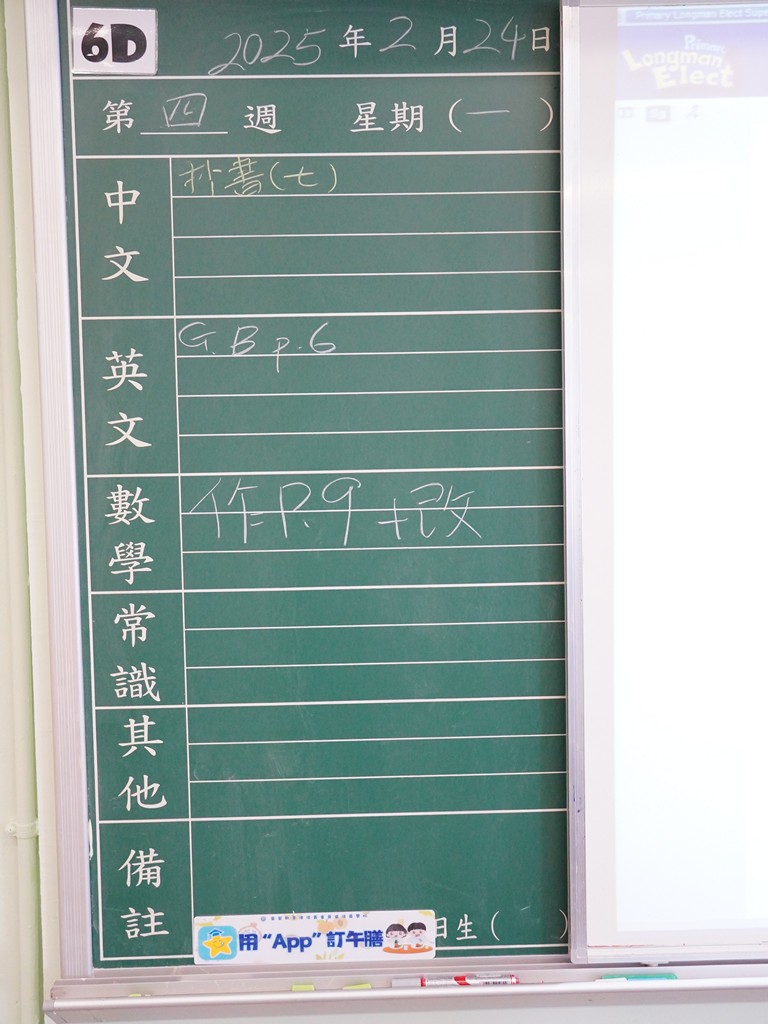 6D
2025年2月24日
第四週 星期(一)
中文
抄書(七)
英文
G.B p.6
數學
作P.9 +改
常識
其他
備註
日生( )
用“App”訂午膳
Primary Longman Elect
Primary
Longman
Elect